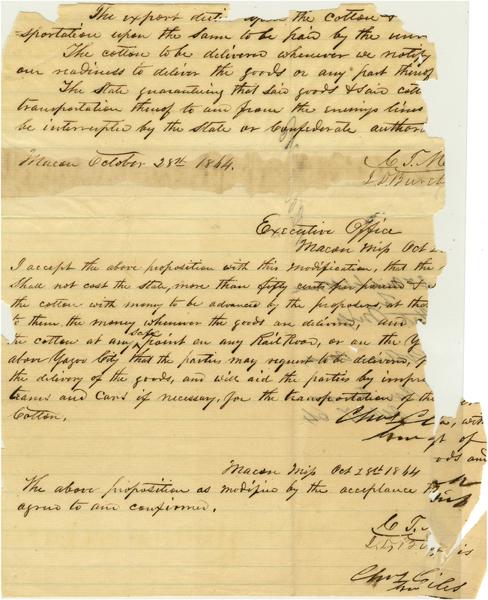 The export duties upon the cotton &
sportation upon the same to be paid by the
The cotton to be delivered whenever we notify
our readiness to deliver the goods or any part thereof
The State guaranteeing that said goods & said cott
transportation thereof to and from the enemys lines
be interrupted by the State or Confederate author
Macon October 28th 1864.
C. T. M
J D Burch
Executive Office
Macon Miss Oct
I accept the above proposition with this modification, that the
Shall not cost the state, more than fifty cents per pound
the cotton with money to be advanced by the proposers, at the
to them the money whenever the goods are delivered, and
the cotton at any safe point on any Rail Road, or on the Y
above Yazoo City that the parties may request to be delivered,
the delivery of the goods, and will aid the parties by impre
teams and Cars if necessary, for the transportation of the
Cotton.
Chas Cl
, with
Gov
of
ods and
Macon Miss Oct 28th 1864
The above proposition as modified by the acceptance
agreed to and confirmed.
C. T.
is
Chas